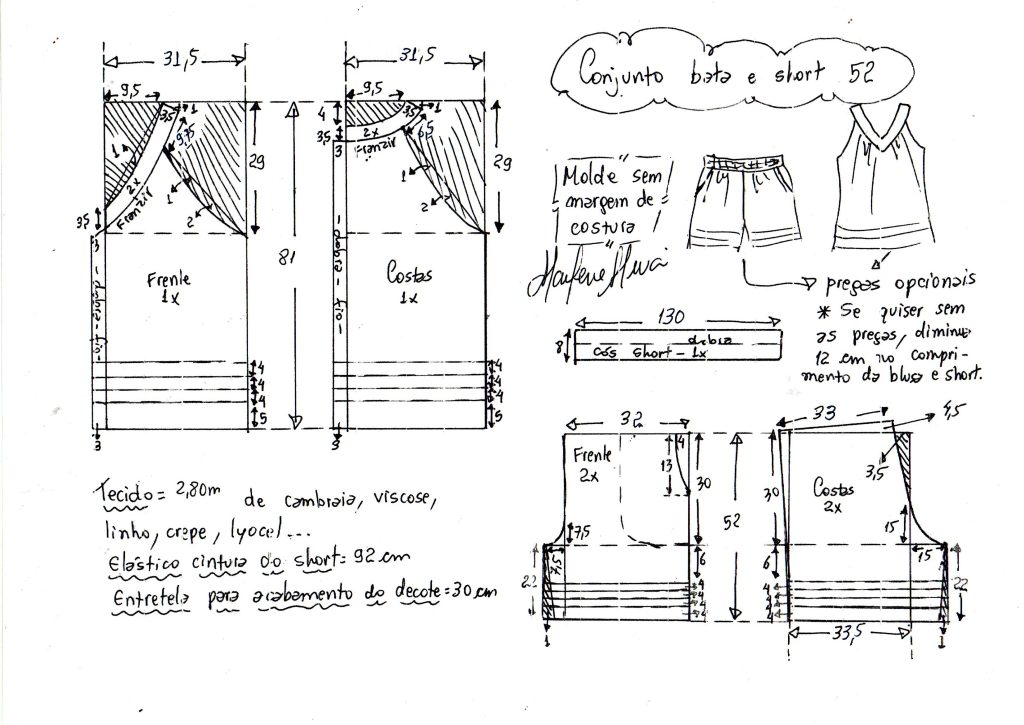 Conjunto bata e short 52
31,5
9,5
3,5
1
9,75
1
2x
Franzir
1
2
29
3,5
3
dobra-fio
Frente
1x
81
4
4
4
5
3
31,5
9,5
4
3,5
1
6,5
2x
Franzir
3,5
3
1
2
29
dobra-fio
Costas
1x
4
4
4
5
3
Molde sem
margem de
costura
pregas opcionais
* Se quiser sem
as pregas, diminue
12 cm no compri-
mento da blusa e short.
130
8
dobra
cós short - 1x
32
Frente
2x
4
13
30
7,5
7,5
22
6
4
4
4
4
1
52
33
4,5
3,5
30
Costas
2x
15
15
6
4
4
4
4
22
33,5
1
Tecido = 2,80m de cambraia, viscose,
linho, crepe, lyocel...
Elástico cintura do short = 92 cm
Entretela para acabamento do decote = 30 cm